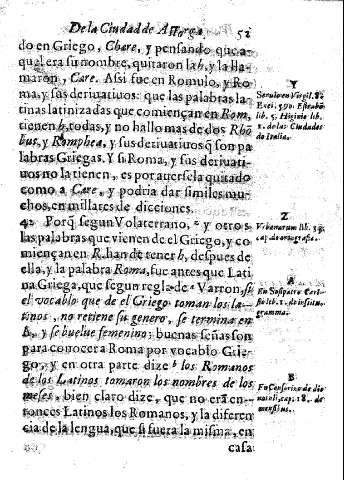 De la Ciudad de Astorga. 52
do en Griego, Chare, y pensando que a-
quel era su nombre, quitaron la h, y la lla-
maron, Care. Assi fue en Romulo, y Ro-
ma, y sus deriuatiuos: que las palabras la-
tinas latinizadas que comiençan en Rom,
tienen h, todas, y no hallo mas de dos Rhō
bus, y Romphea, y sus deriuatiuos q̃ son pa
labras Griegas. Y si Roma, y sus deriuati-
uos no la tienen, es por auersela quitado
como a Care, y podria dar similes mu-
chos, en millares de dicciones.
42 Porq̃ segun Volaterrano, z y otros
las palabras que vienen de el Griego, y co
miençan en R. han de tener h, despues de
ella, y la palabra Roma, fue antes que Lati
na Griega, que segun regla de a Varron, si
el vocablo que de el Griego toman los la-
tinos, no retiene su genero, se termina en
A, y se buelue femenino: buenas señas son
para conocer a Roma por vocablo Grie-
go, y en otra parte dize b los Romanos
de los Latinos tomaron los nombres de los
meses, bien claro dize, que no eran en-
tonces Latinos los Romanos, y la diferen
cia de la lengua, que si fuera la misma, en
casa
Y
Seruio en Virgil. 8.
Enei. 590. Estrabō
lib. 5. Higinio lib.
2. de las Ciudades
de Italia.
Z
Vrbanarum lib. 3
cap. de ortografia.
A
En Susipatro Cari-
sio lib. 1. de
gramma.
B
En Censorino de die
natali, cap. 18. de
mensibus.